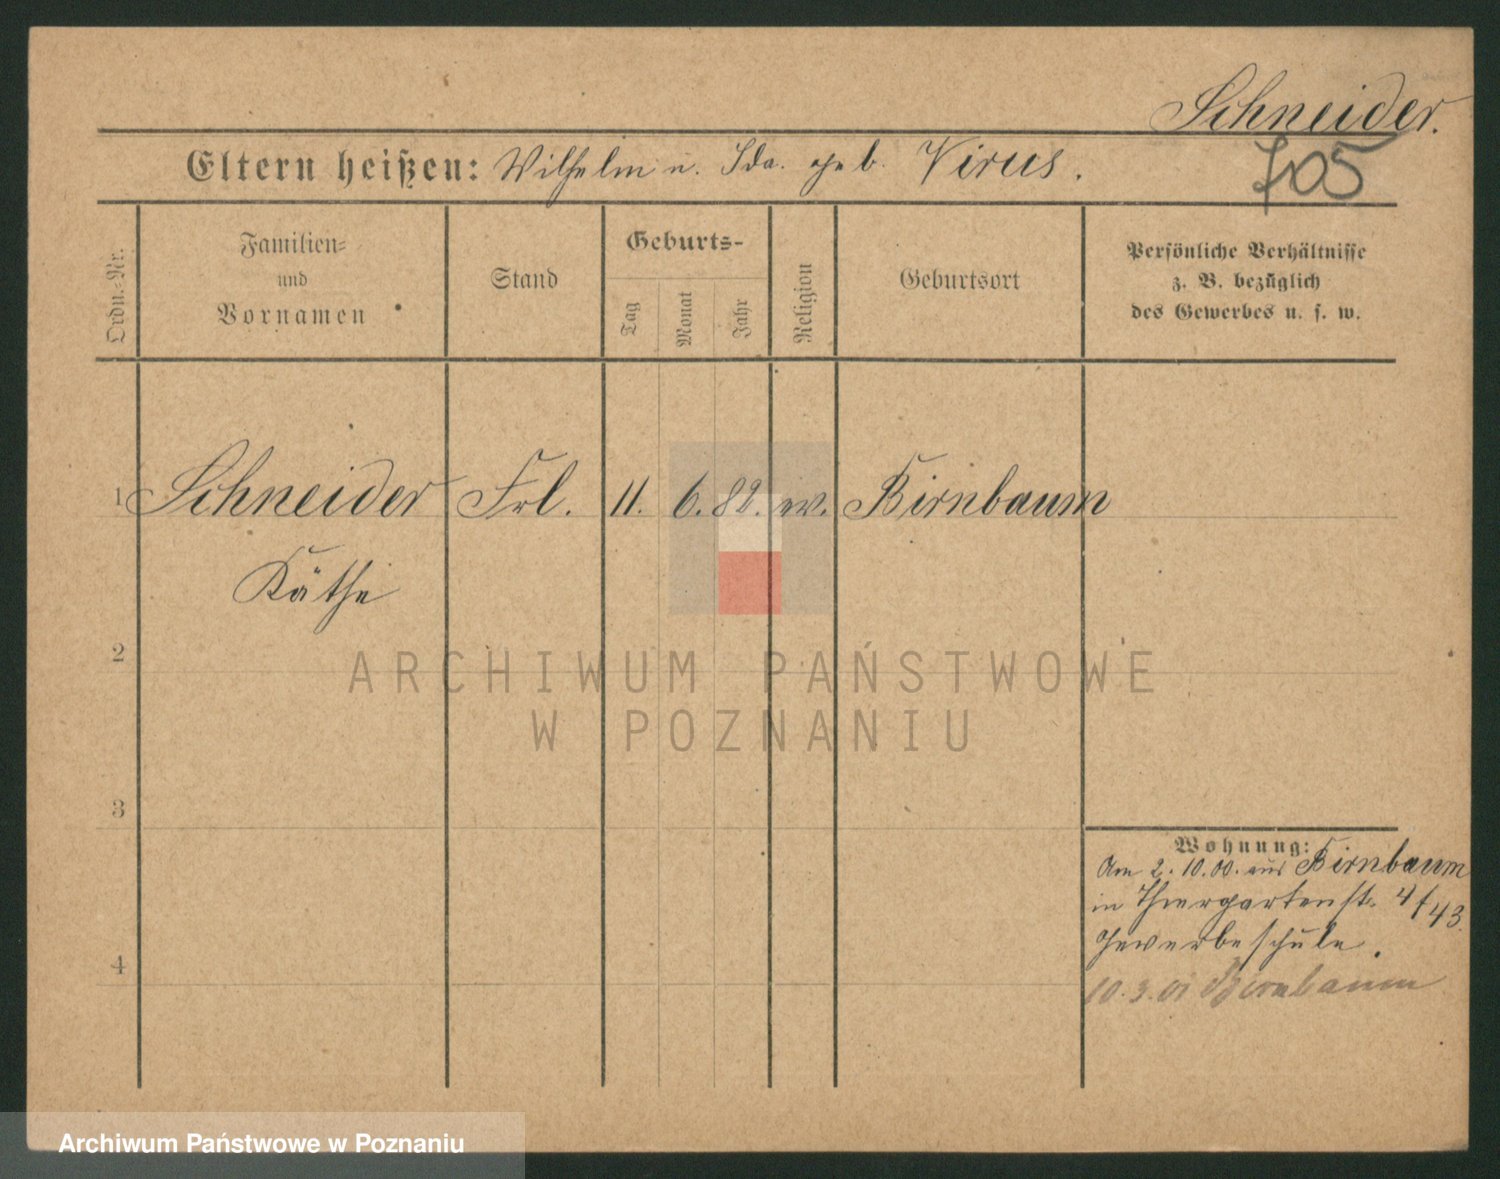 Schneider.
705
Eltern heißen: Wilhelm u. Ida. geb. Virus.
Ordn.-Nr.
Familien-
und
Vornamen
Stand
Geburts-
Tag
Monat
Jahr
Religion
Geburtsort
Persönliche Verhältnisse
z. B. bezüglich
des Gewerbes u. s. w.
1 Schneider Frl. 11. 6. 82. ev. Birnbaum
Käthe
2
3
4
Wohnung:
Am 2. 10. 00. aus Birnbaum
in Thiergartenstr. 4/43.
Gewerbeschule.
10.3.01 Birnbaum
ARCHIWUM PAŃSTWOWE
W POZNANIU
Archiwum Państwowe w Poznaniu